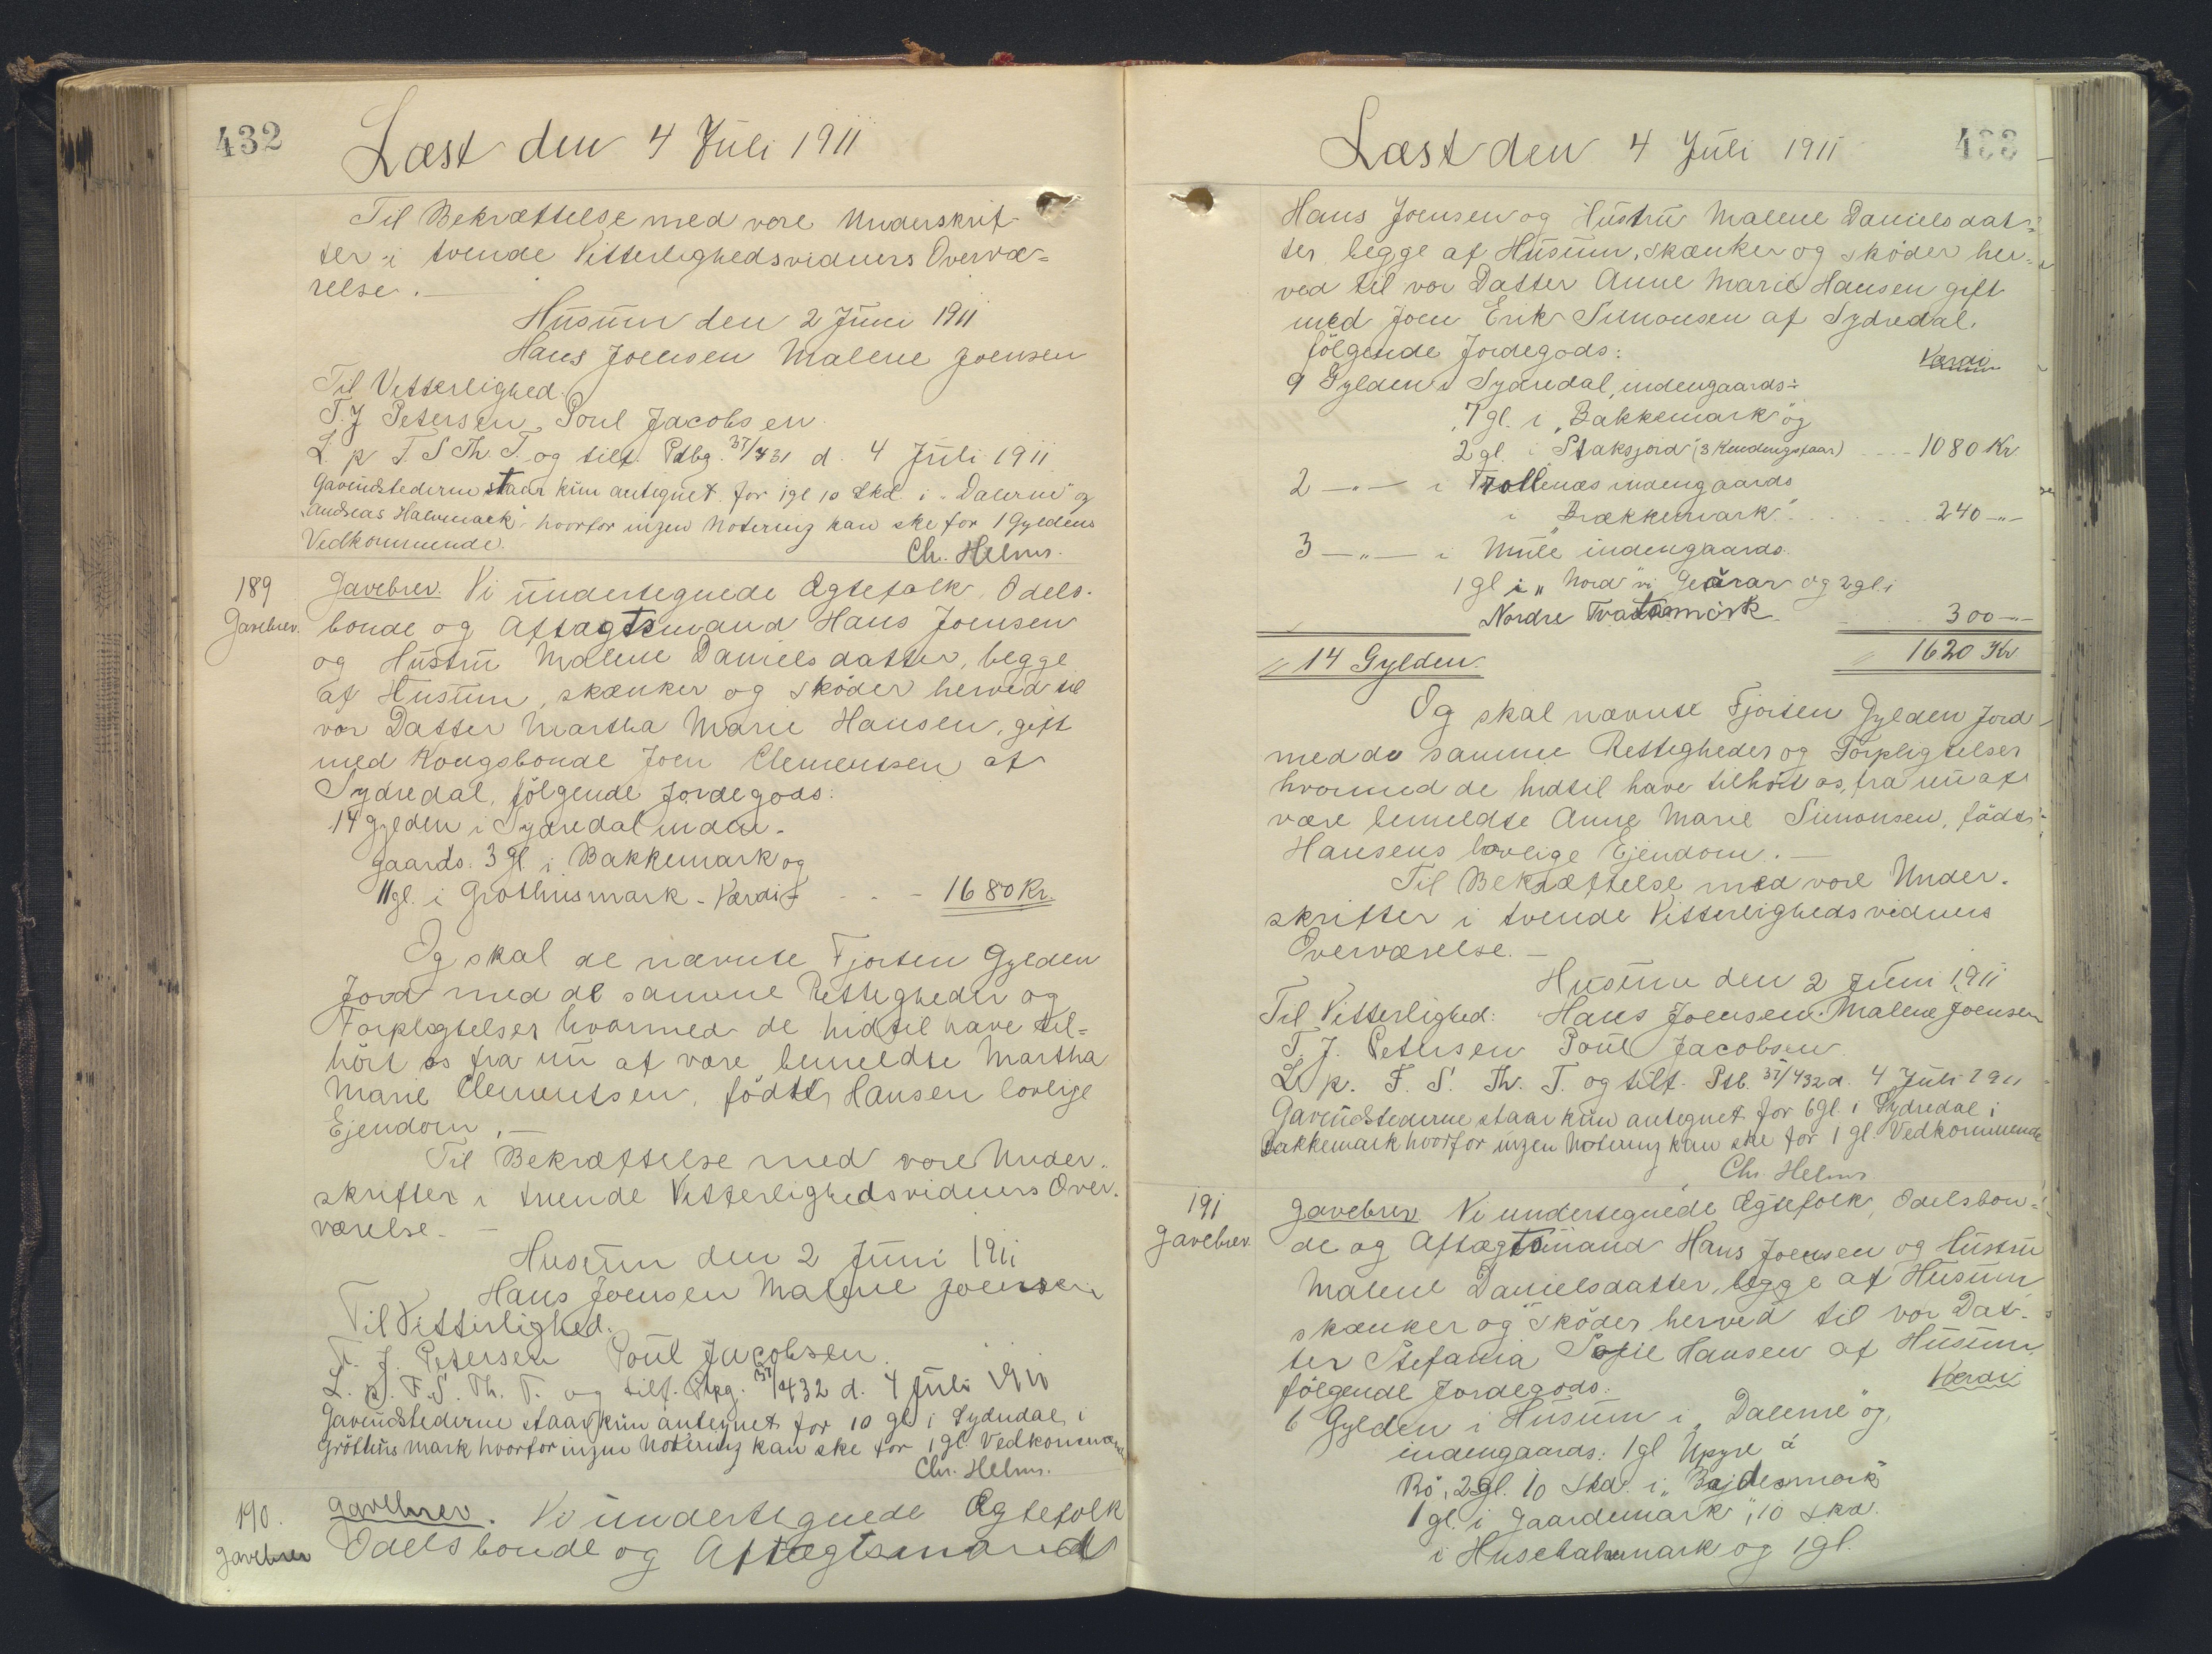 432
Læst den 4 Juli 1911
Til Bekræftelse med vore Underskrif-
ter i tvende Vitterlighedsvidners Overvæ=
relse.
Husum den 2 Juni 1911
Hans Joensen Malene Joensen
Til Vitterlighed.
T. J Petersen Poul Jacobsen
L. p F S Th. T. og tilf. Ptbg. 37/431 d. 4 Juli 1911
Gavenstederne staar kun antegnet for 1gl 10 Skd i "Dalerne" og
"Andreas Halvmark" hvorfor ingen Notering kan ske for 1 Gyldens
Vedkommende.
Ch. Helms.
189
Gavebrev.
Gavebrev. Vi undertegnede Ægtefolk, Odels-
bonde og Aftægtsmand Hans Joensen
og Hustru Malene Danielsdatter, begge
af Husum, skænker og sköder herved til
vor Datter Martha Marie Hansen, gift
med Kongsbonde Joen Clementsen af
Sydredal, fölgende Jordegods:
14 Gylden i Sydredal inden-
gaards. 3 gl i Bakkemark og
11 gl. i Grothusmark - Værdi - - - 1680 Kr.
Og skal de nævnte Fjorten Gylden
Jord med de samme Rettigheder og
Forpligtelser hvormed de hidtil have til=
hört os fra nu af være bemeldte Martha
Marie Clementsen, födte Hansen lovlige
Ejendom,-
Til Bekræftelse med vore Under-
skrifter i tvende Vitterlighedsvidners Over-
værelse.-
Husum den 2 Juni 1911
Hans Joensen Malene Joensen
Til Vitterlighed.
T. J. Petersen Poul Jacobsen.
L. p. F. S. Th. T. og tilf. Ptbg. 37/432 d. 4 Juli 1911
Gavenstederne staar kun antegnet for 10 gl i Sydredal i
Gröthus mark hvorfor ingen Notering kan ske for 1 gl. Vedkommende
Chr. Helms.
190.
Gavebrev
Gavebrev. Vi undertegnede Ægtefolk
Odelsbonde og Aftægtsmand
433
Læst den 4 Juli 1911
Hans Joensen og Hustru Malene Danielsdat=
ter begge af Husum, skænker og sköder her=
ved til vor Datter Anne Marie Hansen gift
med Joen Erik Simonsen af Sydredal,
fölgende Jordegods:
Værdi
9 Gylden i Sydredal, indengaards:
7 gl. i "Bakkemark" og
2 gl. i Staksjord (3 Kendingsfaar) - - - 1080 Kr
2 -"- i Trollenæs indengaards
i "Brækkemark" . . . . 240 -"-
3 -"- i Mule indengaards.
1 gl i "Nord vi Geårar og 2 gl. i
Nordre Tvatamörk . . . 300 -"-
14 Gylden. 1620 Kr
Og skal nævnte Fjorten Gylden Jord
med de samme Rettigheder og Forpligtelser
hvormed de hidtil have tilhört os, fra nu af
være bemeldte Anne Marie Simonsen, födte
Hansens lovlige Ejendom.-
Til Bekræftelse med vore Under-
skrifter i tvende Vitterlighedsvidners
Overværelse.-
Husum den 2 Juni 1911
Til Vitterlighed: Hans Joensen. Malene Joensen
T. J. Petersen Poul Jacobsen
L. p. F. S. Th. T. og tilf. Ptb. 37/432 d. 4 Juli 1911
Gavenstederne staar kun antegnet for 6 gl. i Sydredal i
Bakkemark hvorfor ingen Notering kan ske for 1 gl. Vedkommende
Chr Helms
191
Gavebrev.
Gavebrev Vi undertegnede Ægtefolk, Odelsbon=
de og Aftægtsmand Hans Joensen og Hustru
Malene Danielsdatter, begge af Husum
skænker og sköder herved til vor Dat-
ter Stefania Sofie Hansen af Husum,
fölgende Jordegods:
Værdi
6 Gylden i Husum i "Dalerne" og,
indengaards: 1 gl Uppe á
Rö, 2 gl. 10 Skd. i "Bøjdesmark"
1 gl. i Gaardemark, 10 Skd.
i Husebalsmark og 1 gl.